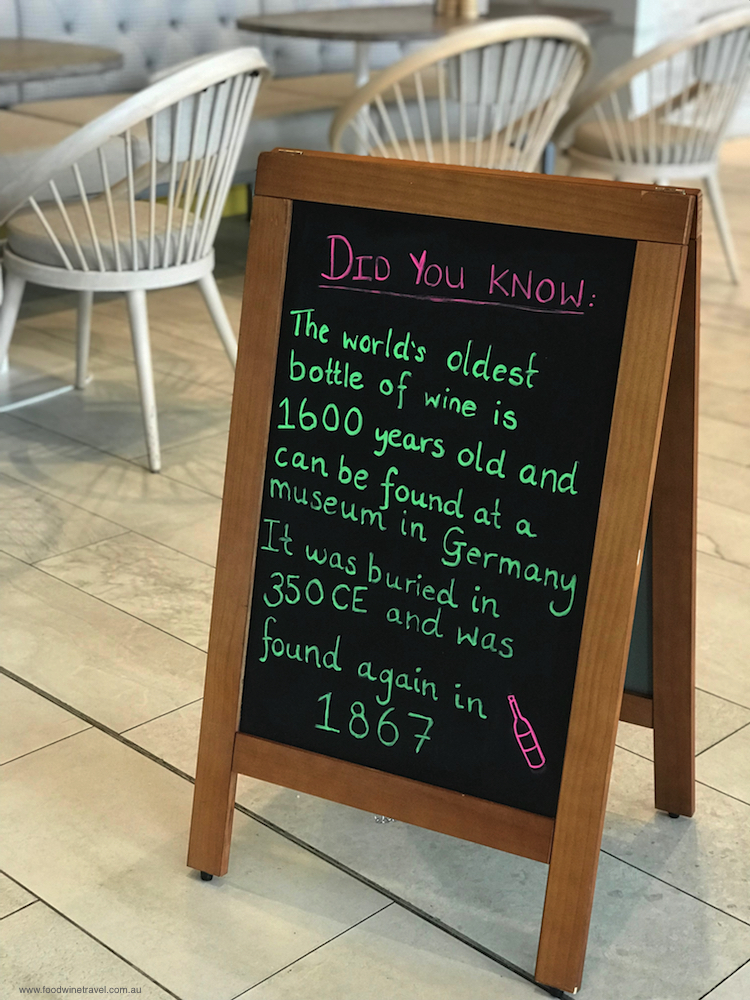 DID YOU KNOW:
The world's oldest
bottle of wine is
1600 years old and
can be found at a
museum in Germany
It was buried in
350CE and was
found again in
1867
www.foodwinetravel.com.au